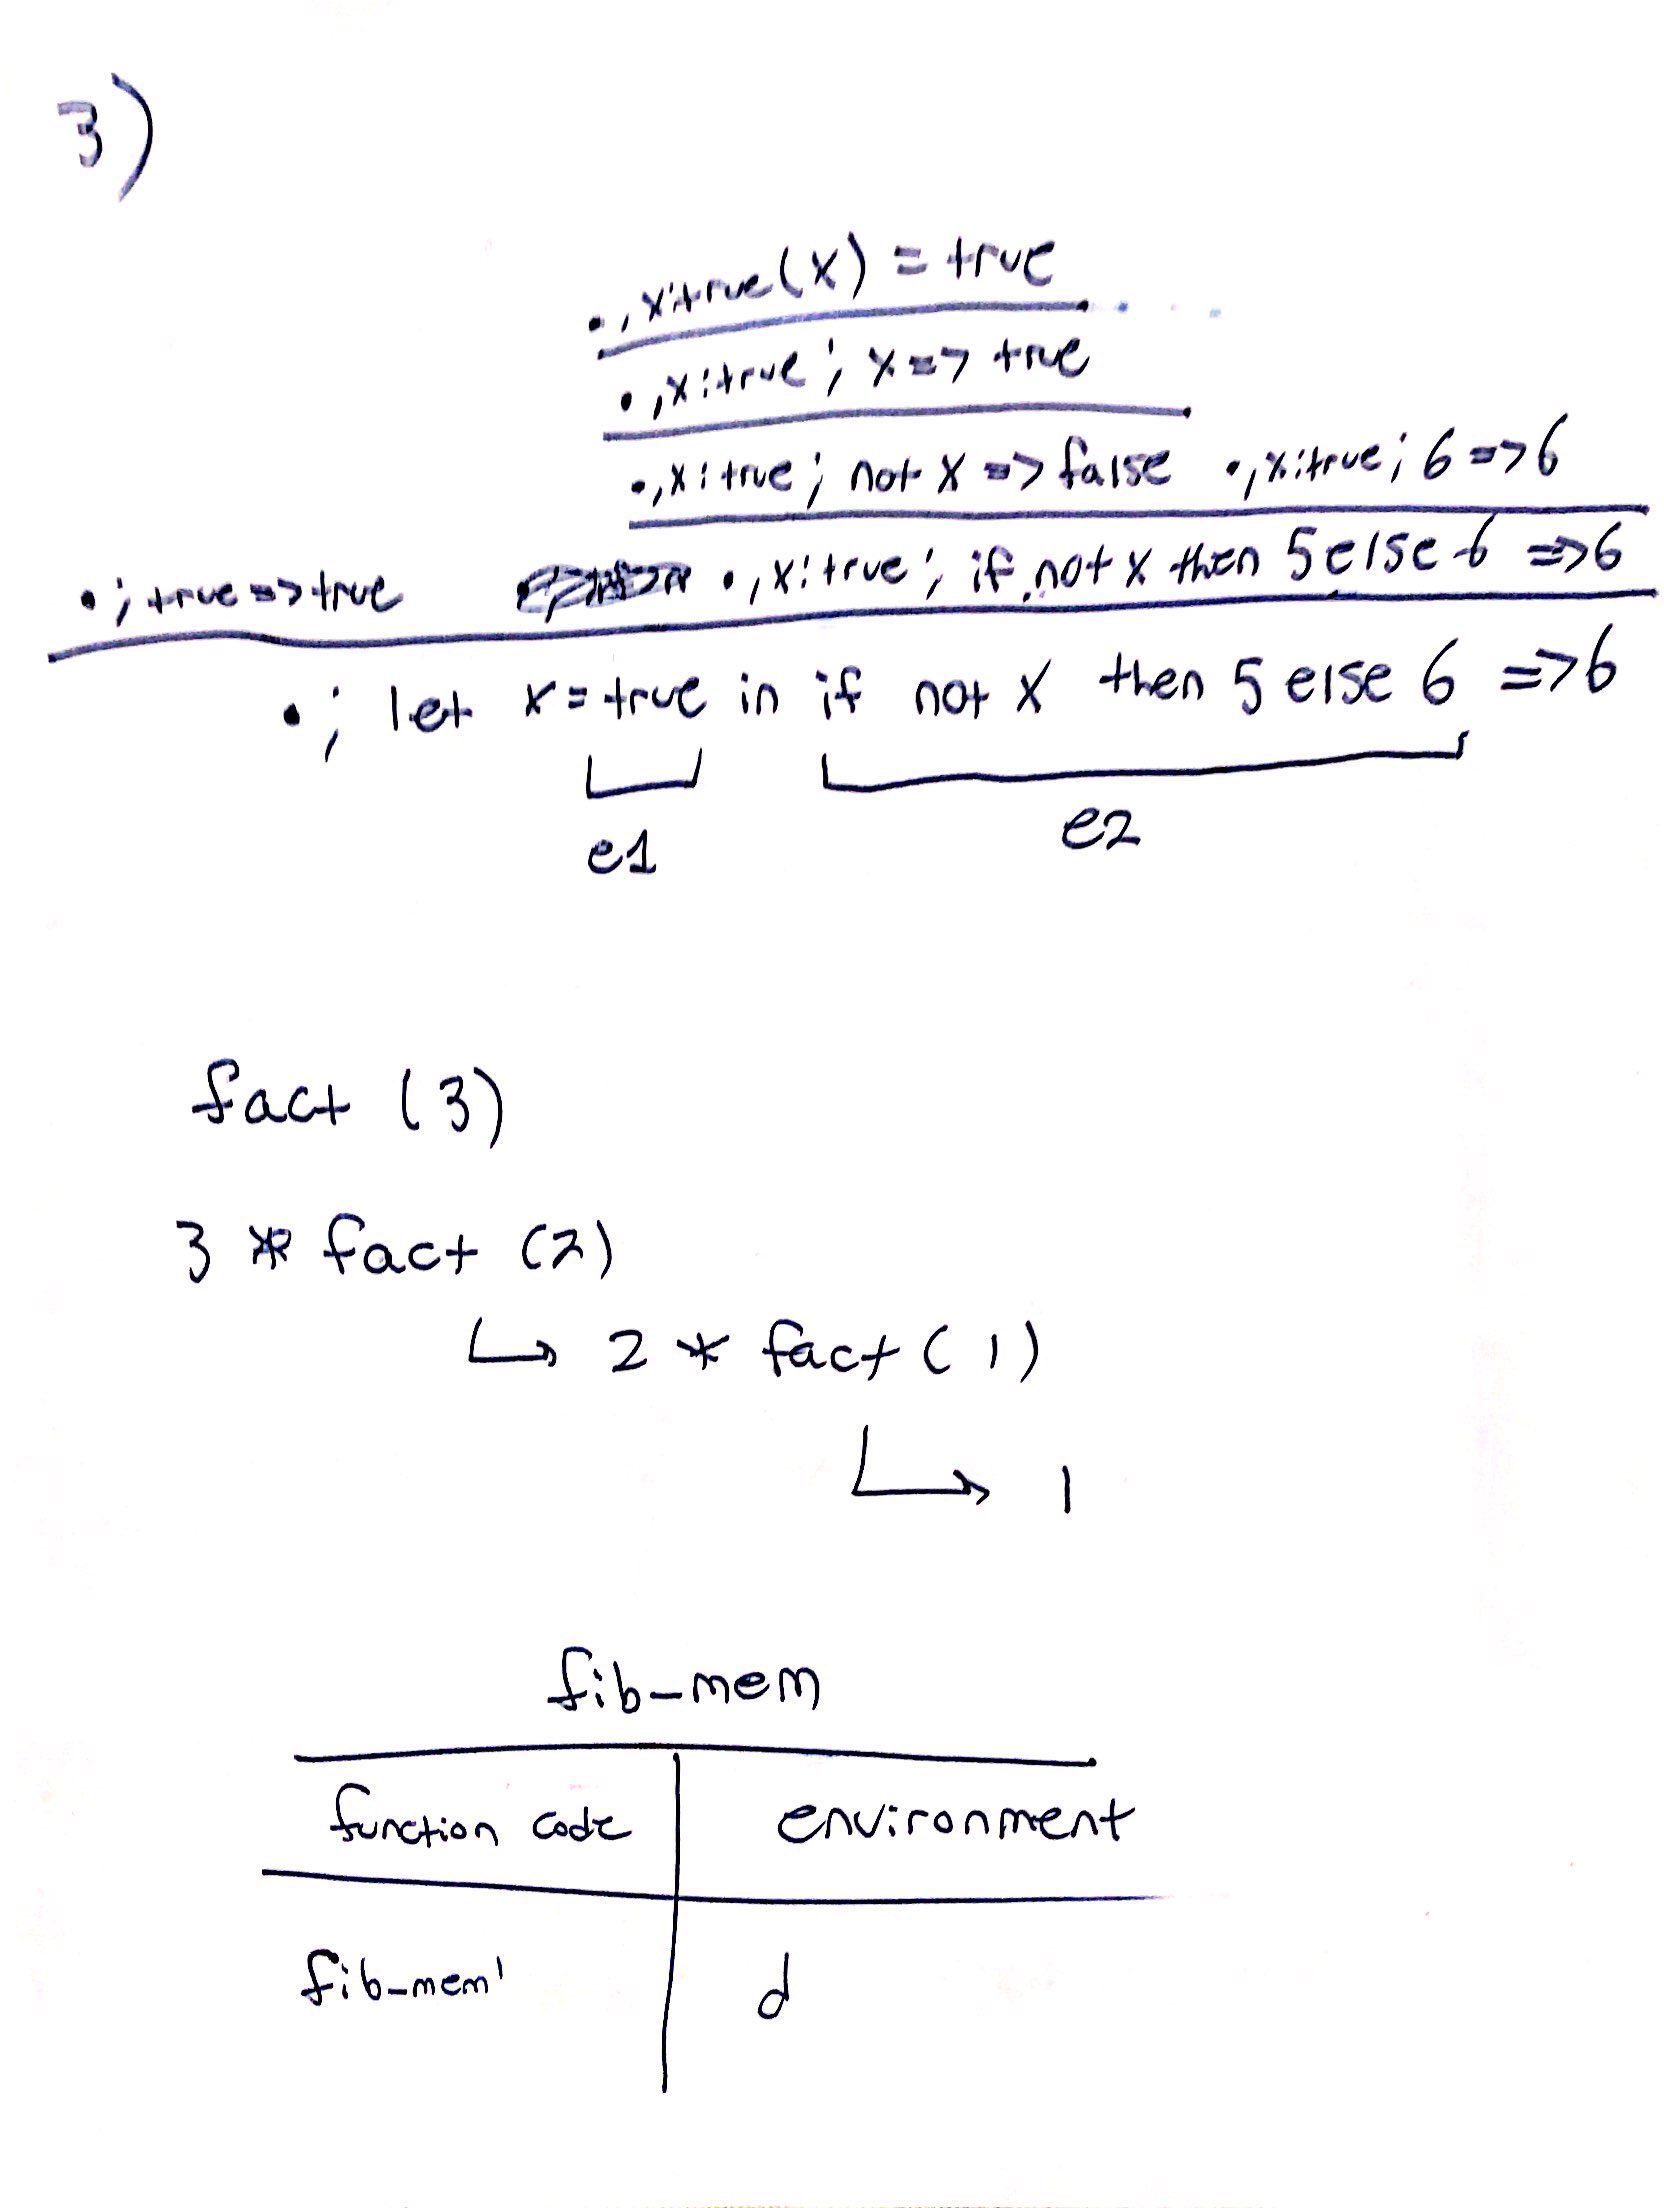 3)
•,x:true(x) = true
•,x:true; x => true
•,x:true; not x => false •,x:true; 6 => 6
•; true => true •,x:true; if not x then 5 else 6 => 6
•; let x = true in if not x then 5 else 6 => 6
e1 e2
fact (3)
3 * fact (2)
↳ 2 * fact (1)
↳ 1
fib-mem
function code environment
fib-mem' d